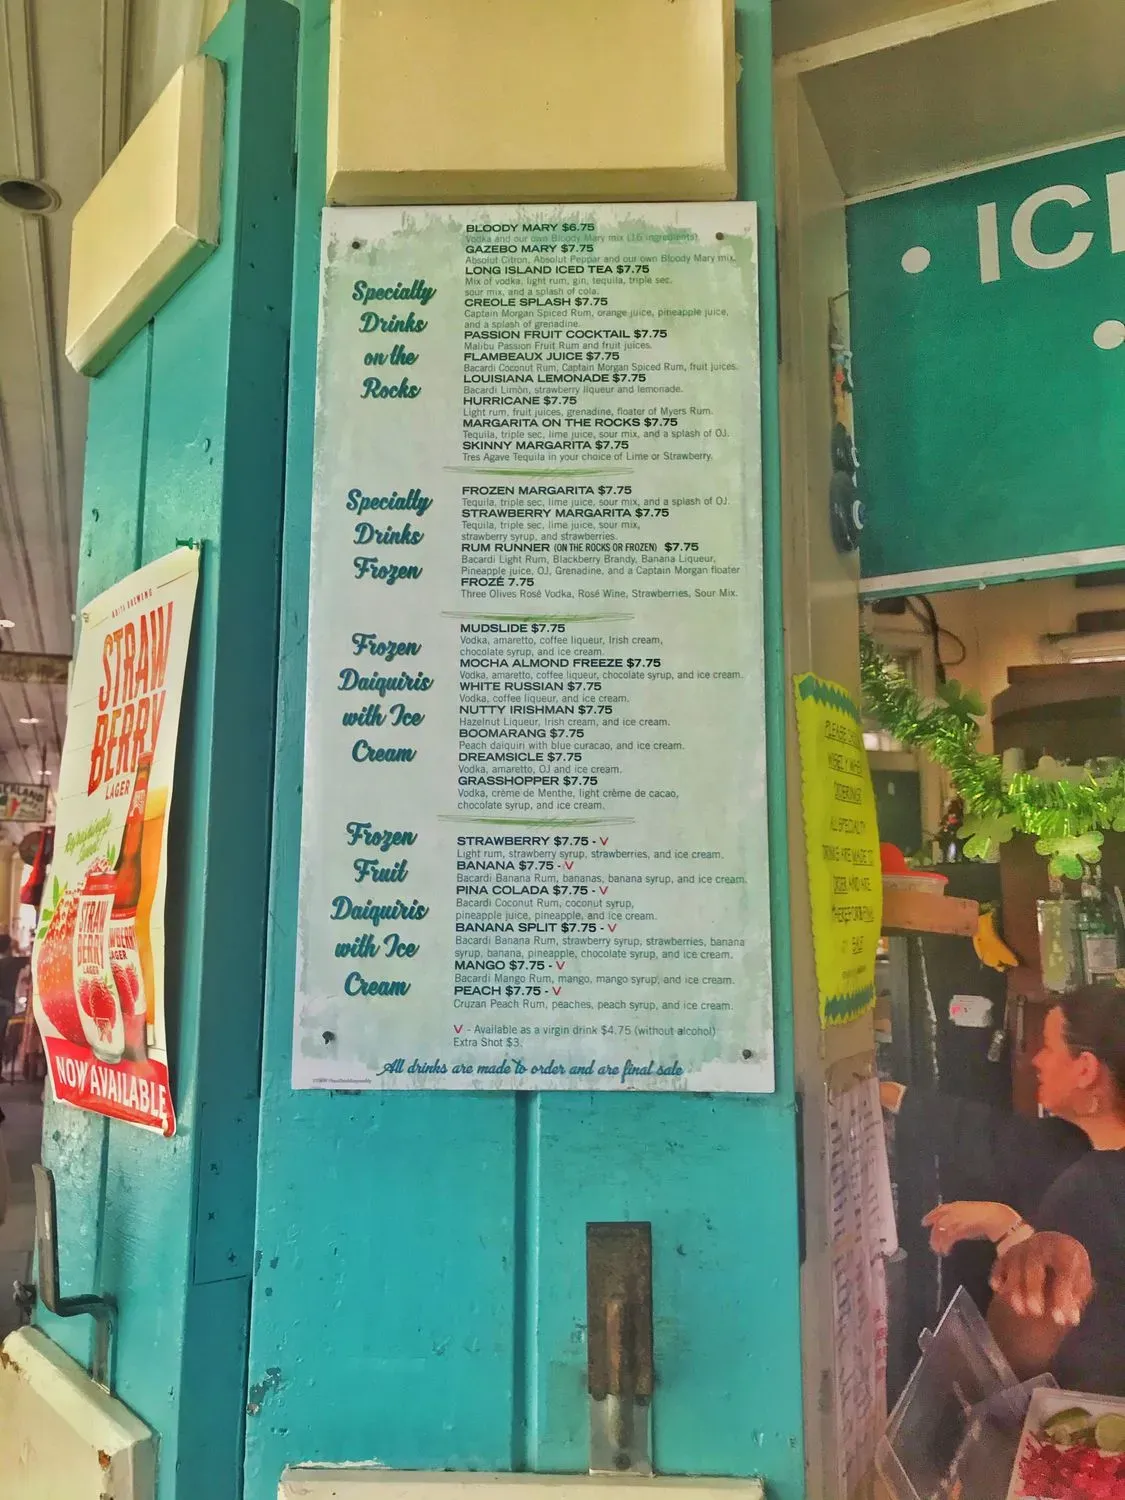 BLOODY MARY $6.75
Vodka and our own Bloody Mary mix (16 ingredients)
GAZEBO MARY $7.75
Absolut Citron, Absolut Peppar and our own Bloody Mary mix.
LONG ISLAND ICED TEA $7.75
Mix of vodka, light rum, gin, tequila, triple sec,
sour mix, and a splash of cola.
CREOLE SPLASH $7.75
Captain Morgan Spiced Rum, orange juice, pineapple juice,
and a splash of grenadine.
PASSION FRUIT COCKTAIL $7.75
Malibu Passion Fruit Rum and fruit juices.
FLAMBEAUX JUICE $7.75
Bacardi Coconut Rum, Captain Morgan Spiced Rum, fruit juices.
LOUISIANA LEMONADE $7.75
Bacardi Limón, strawberry liqueur and lemonade.
HURRICANE $7.75
Light rum, fruit juices, grenadine, floater of Myers Rum.
MARGARITA ON THE ROCKS $7.75
Tequila, triple sec, lime juice, sour mix, and a splash of OJ.
SKINNY MARGARITA $7.75
Tres Agave Tequila in your choice of Lime or Strawberry.
Specialty
Drinks
on the
Rocks
FROZEN MARGARITA $7.75
Tequila, triple sec, lime juice, sour mix, and a splash of OJ.
STRAWBERRY MARGARITA $7.75
Tequila, triple sec, lime juice, sour mix,
strawberry syrup, and strawberries.
RUM RUNNER (ON THE ROCKS OR FROZEN) $7.75
Bacardi Light Rum, Blackberry Brandy, Banana Liqueur,
Pineapple juice, OJ, Grenadine, and a Captain Morgan floater
FROZÉ 7.75
Three Olives Rosé Vodka, Rosé Wine, Strawberries, Sour Mix.
Specialty
Drinks
Frozen
MUDSLIDE $7.75
Vodka, amaretto, coffee liqueur, Irish cream,
chocolate syrup, and ice cream.
MOCHA ALMOND FREEZE $7.75
Vodka, amaretto, coffee liqueur, chocolate syrup, and ice cream.
WHITE RUSSIAN $7.75
Vodka, coffee liqueur, and ice cream.
NUTTY IRISHMAN $7.75
Hazelnut Liqueur, Irish cream, and ice cream.
BOOMARANG $7.75
Peach daiquiri with blue curacao, and ice cream.
DREAMSICLE $7.75
Vodka, amaretto, OJ and ice cream.
GRASSHOPPER $7.75
Vodka, crème de Menthe, light crème de cacao,
chocolate syrup, and ice cream.
Frozen
Daiquiris
with Ice
Cream
STRAWBERRY $7.75 - V
Light rum, strawberry syrup, strawberries, and ice cream.
BANANA $7.75 - V
Bacardi Banana Rum, bananas, banana syrup, and ice cream.
PINA COLADA $7.75 - V
Bacardi Coconut Rum, coconut syrup,
pineapple juice, pineapple, and ice cream.
BANANA SPLIT $7.75 - V
Bacardi Banana Rum, strawberry syrup, strawberries, banana
syrup, banana, pineapple, chocolate syrup, and ice cream.
MANGO $7.75 - V
Bacardi Mango Rum, mango, mango syrup, and ice cream.
PEACH $7.75 - V
Cruzan Peach Rum, peaches, peach syrup, and ice cream.
Frozen
Fruit
Daiquiris
with Ice
Cream
V - Available as a virgin drink $4.75 (without alcohol)
Extra Shot $3.
All drinks are made to order and are final sale
ABITA BREWING
STRAW
BERRY
LAGER
STRAW
BERRY
LAGER
NOW AVAILABLE
• ICE
PLEASE
WHEN
ORDERING
ALL SPECIALTY
DRINKS ARE MADE TO
ORDER AND ARE
THEREFORE FINAL